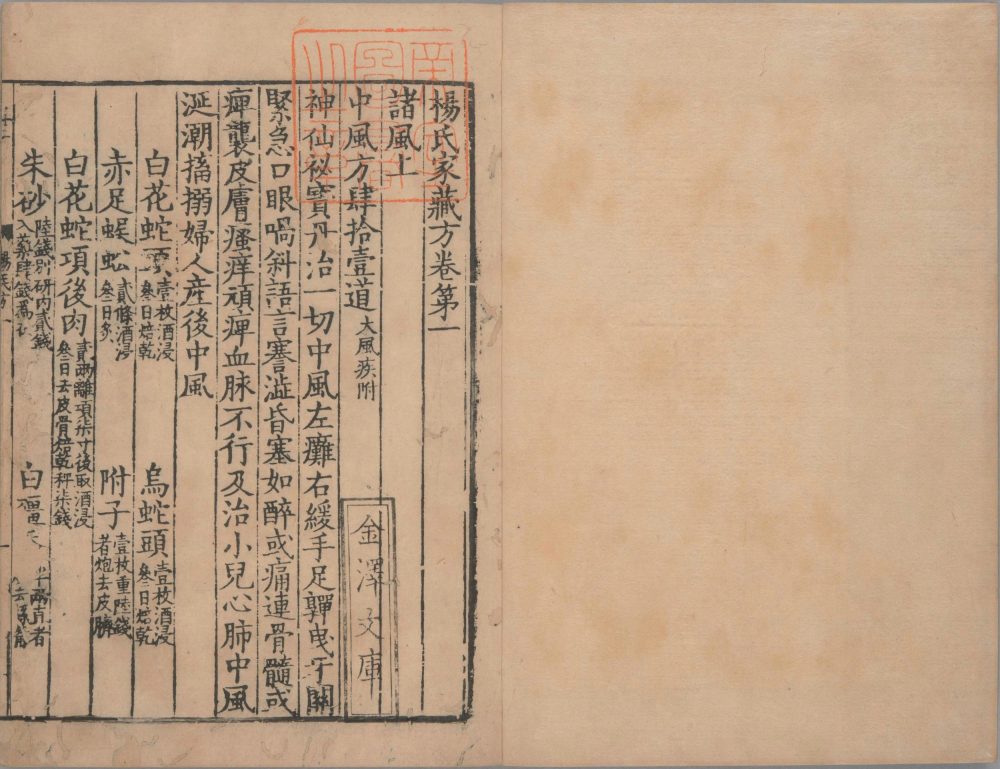 楊氏家藏方卷第一
諸風上
中風方肆拾壹道大風疾附
神仙祕寶丹治一切中風左癱右緩手足嚲曳牙關
緊急口眼喎斜語言謇澁昏塞如醉或痛連骨髓或
痺襲皮膚瘙痒頑痺血脉不行及治小兒心肺中風
涎潮搐搦婦人產後中風
白花蛇頭壹枚酒浸叁日焙乾 烏蛇頭壹枚酒浸叁日焙乾
赤足蜈蚣貳條酒浸叁日炙 附子壹枚重陸錢者炮去皮臍
白花蛇項後肉貳兩離項柒寸後取酒浸叁日去皮骨焙乾秤柒錢
朱砂陸錢別研內貳錢入藥肆錢爲衣 白殭 半兩直者去
金澤文庫